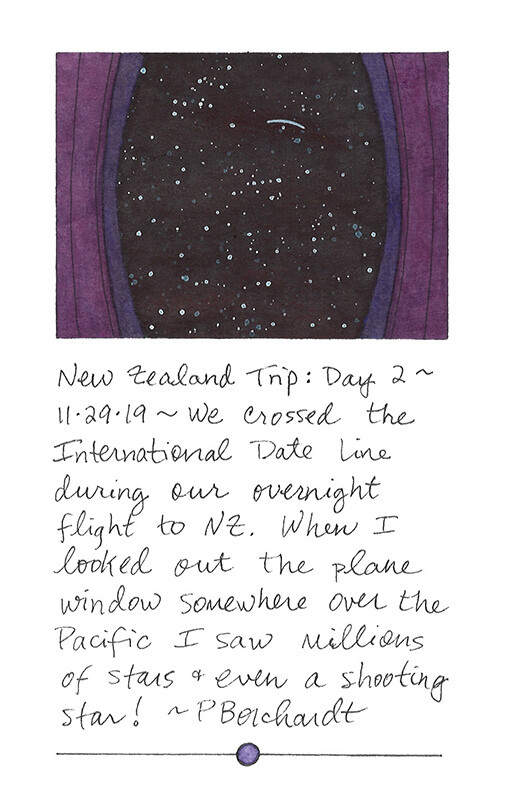 New Zealand Trip: Day 2 ~
11·29·19 ~ We crossed the
International Date Line
during our overnight
flight to NZ. When I
looked out the plane
window somewhere over the
Pacific I saw millions
of stars & even a shooting
star! ~ P Borchardt